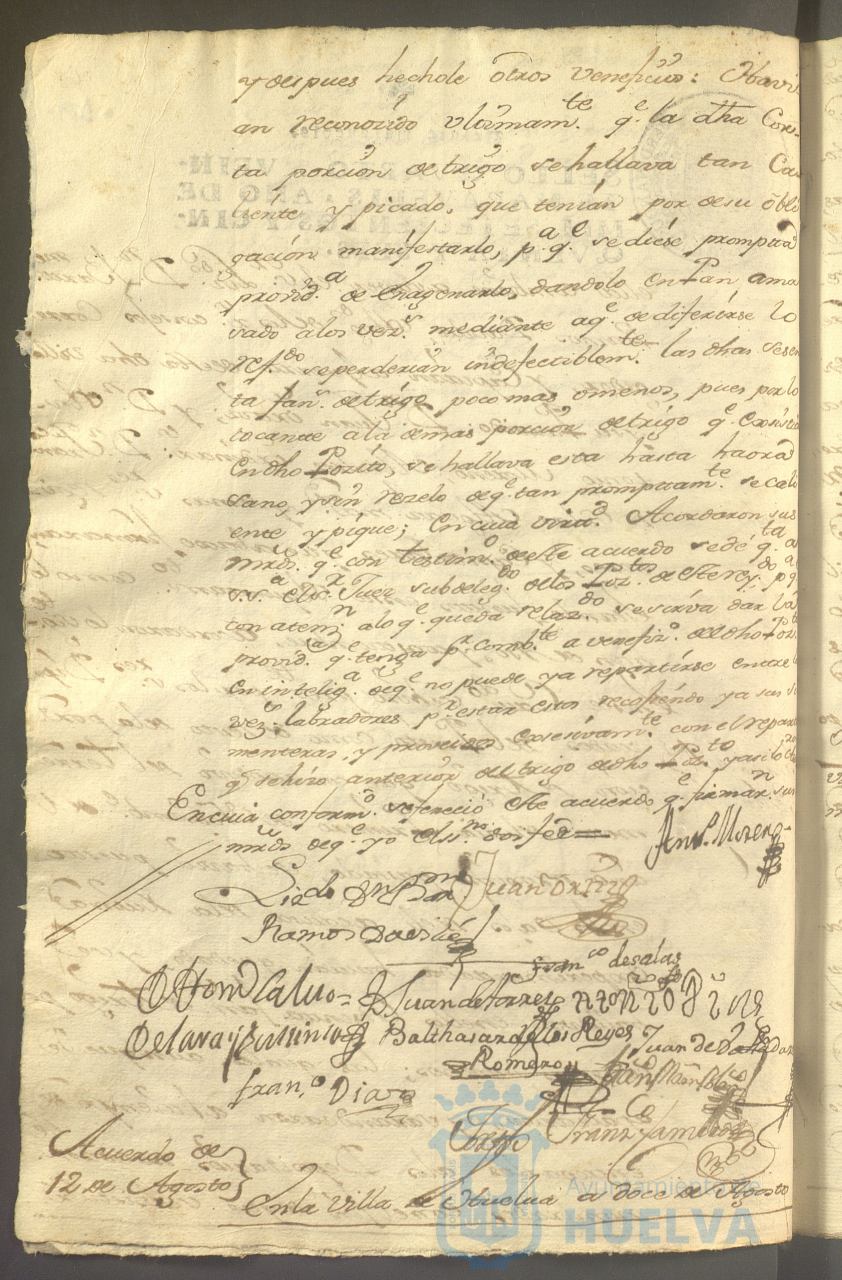 y despues hechole otros veneficios: Havi
an reconozido ultimam.te q.e la dha Cor-
ta porcion de trigo se hallava tan Ca
liente y picado, que tenian por de su obli
gación manifestarlo, p.a q.e se diese prompta
provid.a de enagenarlo, dandolo en Pan ama
sado a los vez.s mediante a q.e de diferirse lo
ref.do se perderian indefectiblem.te las dhas sesen
ta fan.s de trigo poco mas o menos, pues por lo
tocante a la demas porcion de trigo q.e existia
en dho Pozito, se hallava esta hasta haora
sano, y sin rezelo de q.e tan promptam.te se cali
ente y pique; En cuia virtd. Acordaron sus
mrds. q.e con testim.o de este acuerdo se dé q.ta a
s.s.a el s.r Juez subdeleg.do de los Poz.tos de este rey.do p.a q.e
con atem.n a lo q.e queda relaz.do se sirva dar la
provid.a q.e tenga p.r comb.te a venefiz.o de dho Poz.to
en intelig.a de q.e no puede ya repartirse entre
vez.s labradores p.r estar estos recogiendo ya sus se
menteras, y proveidos exsesivam.te con el repar
q.e se hizo anterior del trigo de dho Poz.to
En cuia conform.d se feneció este acuerdo q.e firmar.n sus
mrds de q.e yo el ss.no doi fee=
Ant.o Moreno
Lic.do Dn
Juan Ortiz
Ramos
Fran.co de salas
Thom.s Calvo = Juan de torres
de Lara y Balthasar de los Reyes
Romero
Juan de
Fran.co Diaz
Acuerdo de
12 de Agosto
En la Villa de Huelva a doce de Agosto
Ayuntamiento de
HUELVA